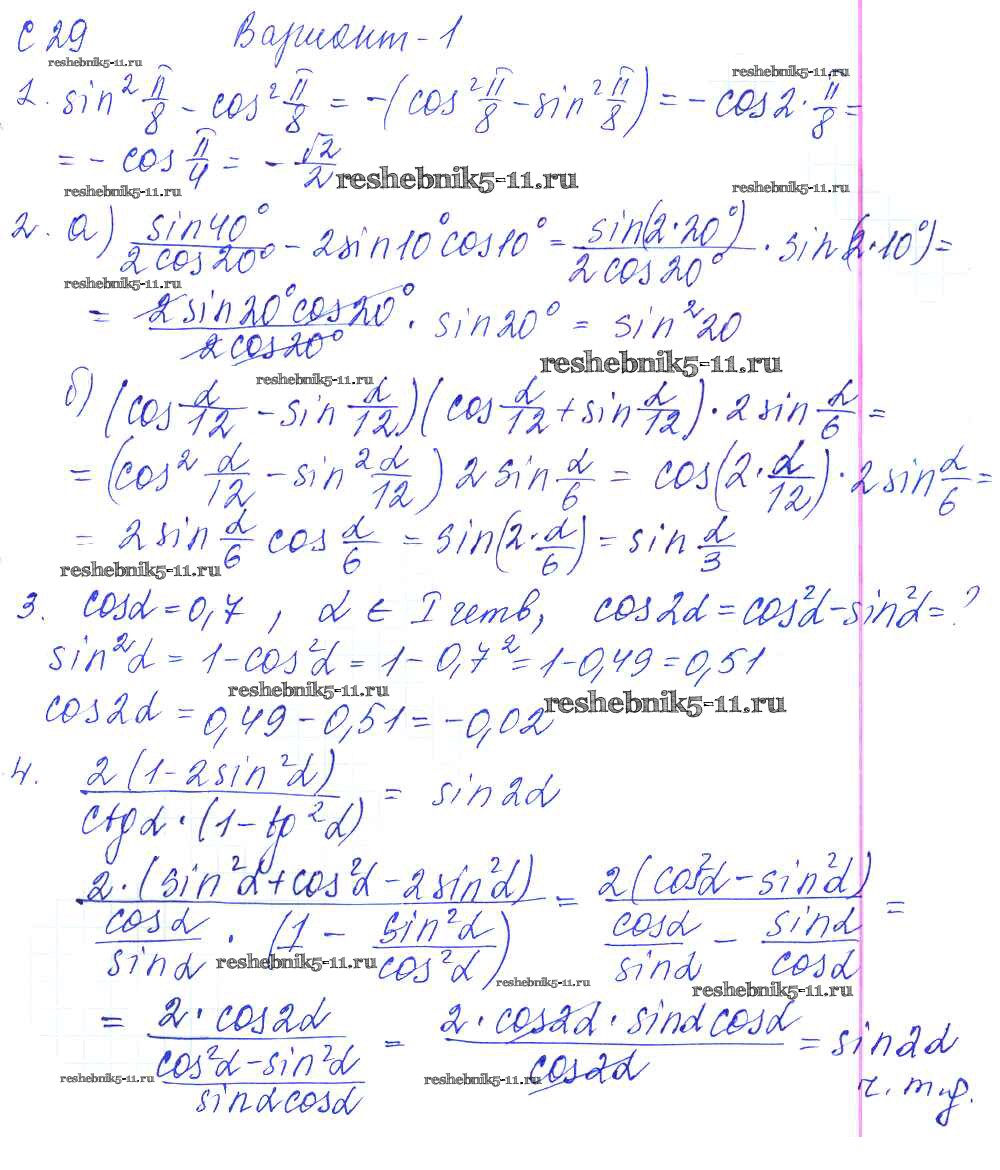 С 29 Вариант-1
reshebnik5-11.ru reshebnik5-11.ru
1. sin² π/8 - cos² π/8 = -(cos² π/8 - sin² π/8) = -cos2·π/8 =
= - cos π/4 = - √2/2 reshebnik5-11.ru
reshebnik5-11.ru reshebnik5-11.ru
2. а) sin40°/2cos20° - 2sin10°cos10° = sin(2·20°)/2cos20° · sin(2·10°) =
reshebnik5-11.ru
= 2sin20°cos20°/2cos20° · sin20° = sin²20
reshebnik5-11.ru
reshebnik5-11.ru
б) (cos α/12 - sin α/12)(cos α/12 + sin α/12)·2sin α/6 =
= (cos² α/12 - sin² α/12) 2sin α/6 = cos(2·α/12)·2sin α/6 =
= 2sin α/6 cos α/6 = sin(2·α/6) = sin α/3
reshebnik5-11.ru
3. cosα = 0,7, α ∈ I четв, cos2α = cos²α - sin²α = ?
sin²α = 1 - cos²α = 1 - 0,7² = 1 - 0,49 = 0,51
reshebnik5-11.ru
cos2α = 0,49 - 0,51 = -0,02 reshebnik5-11.ru
4. 2(1-2sin²α)/ctgα·(1-tg²α) = sin2α
2·(sin²α+cos²α-2sin²α)/(cosα/sinα · (1 - sin²α/cos²α)) = 2(cos²α-sin²α)/(cosα/sinα - sinα/cosα) =
reshebnik5-11.ru reshebnik5-11.ru reshebnik5-11.ru
= 2·cos2α/((cos²α-sin²α)/sinαcosα) = 2·cos2α·sinαcosα/cos2α = sin2α
reshebnik5-11.ru reshebnik5-11.ru
ч. т.д.